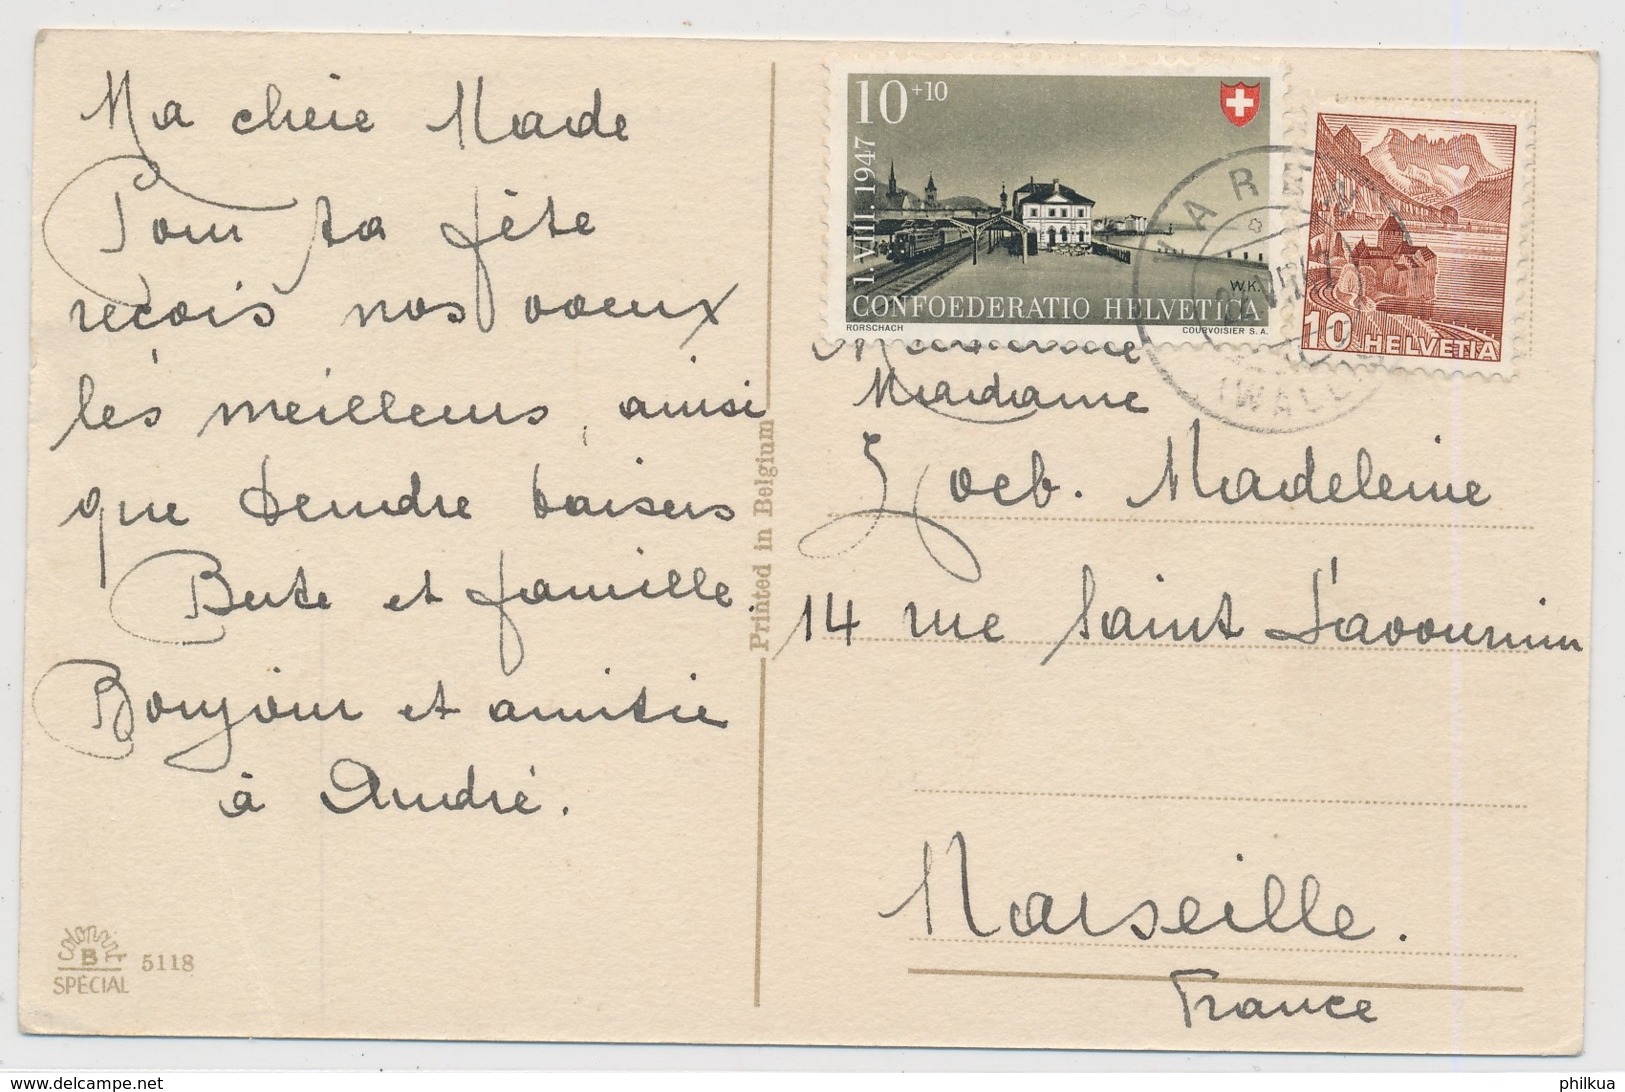 Ma chère Made
Pour ta fête
reçois nos voeux
les meilleurs, ainsi
que tendre baisers
Berte et famille
Bonjour et amitié
à André.
COLORPRINT
B
SPÉCIAL 5118
Printed in Belgium
10 +10
1. VIII. 1947
W.K.
CONFOEDERATIO HELVETICA
RORSCHACH COURVOISIER S.A.
10 HELVETIA
VAREN
(WALLIS)
Madame
Madame
Zoeb. Madeleine
14 rue Saint Savournin
Marseille.
France
philkua